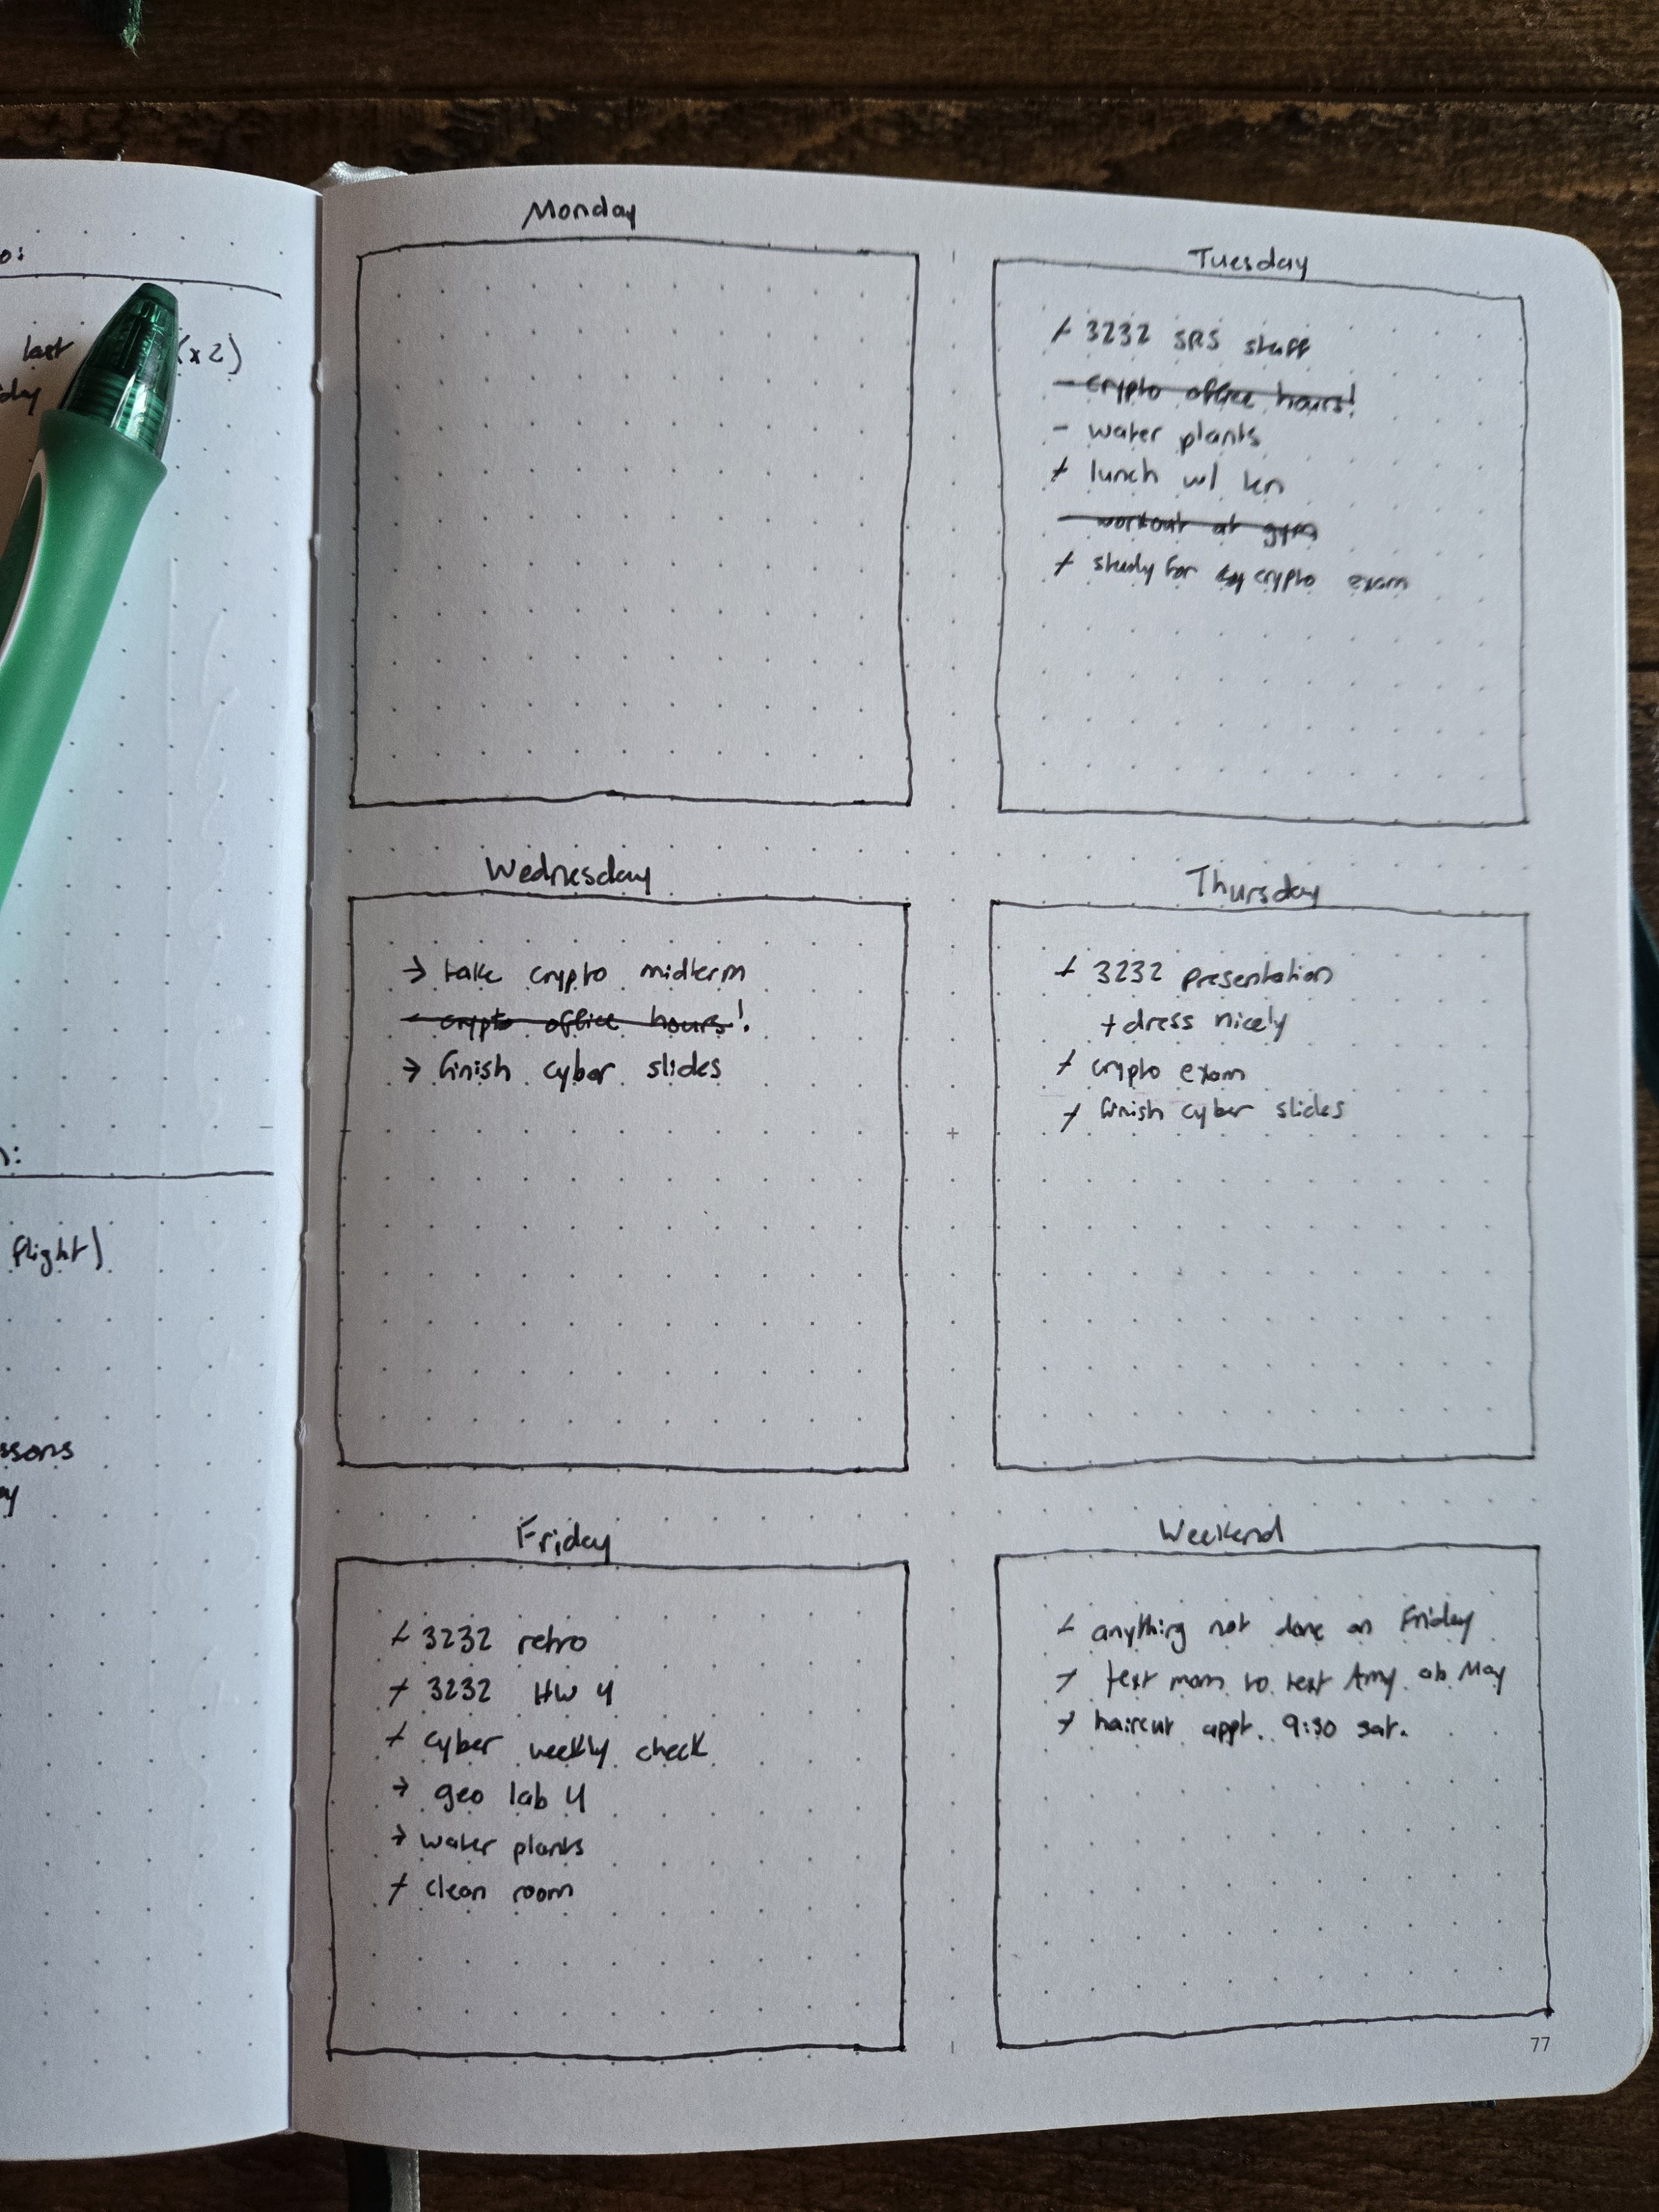 o:
last (x2)
day
flight)
ssons
ay
Monday
Tuesday
+ 3232 SRS stuff
- crypto office hours!
- water plants
+ lunch w/ ken
- workout at gym
+ study for crypto exam
Wednesday
→ take crypto midterm
- crypto office hours!
→ finish cyber slides
Thursday
+ 3232 presentation
+ dress nicely
+ crypto exam
+ finish cyber slides
Friday
+ 3232 retro
+ 3232 HW 4
+ cyber weekly check
→ geo lab 4
→ water plants
+ clean room
Weekend
+ anything not done on Friday
+ text mom to text Amy ab May
+ haircut appt. 9:30 sat.
77